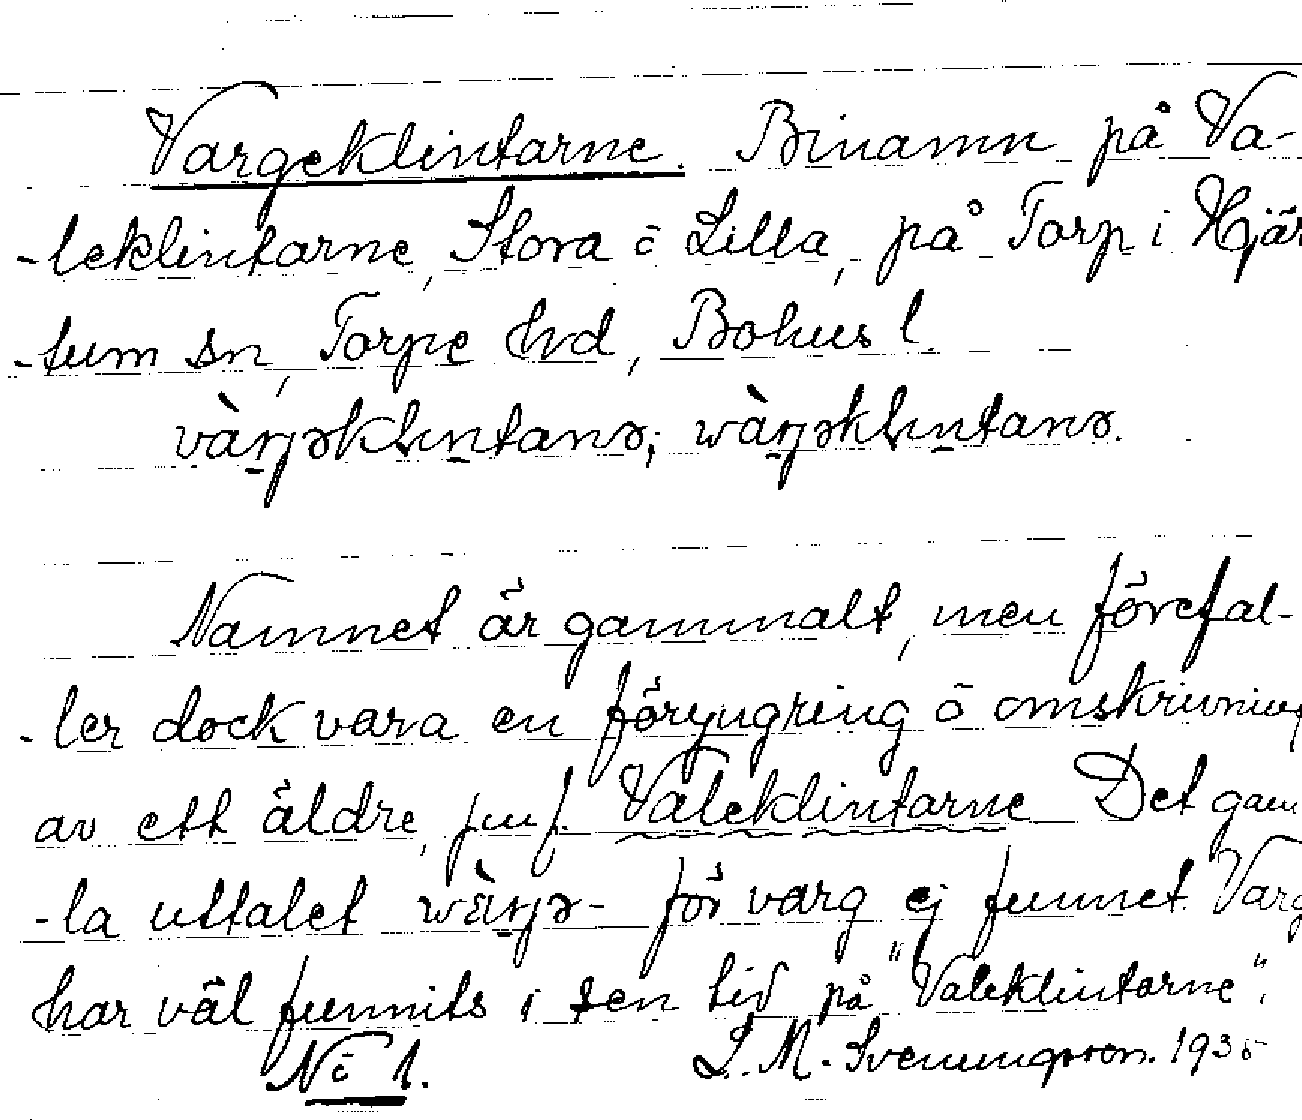 Vargeklintarne. Binamn på Va-
-leklintarne, Stora ō Lilla, på Torp i Hjär
-tum sn, Torpe hrd, Bohusl.
vàrjəklintanə; wàrjəklintanə.
Namnet är gammalt, men förefal-
-ler dock vara en föryngring ō omskrivning
av ett äldre, jmf. Valeklintarne Det gam
-la uttalet wàrjə- för varg ej funnet. Varg
har väl funnits i sen tid på "Valeklintarne".
No 1. L. M. Svenungsson. 1935